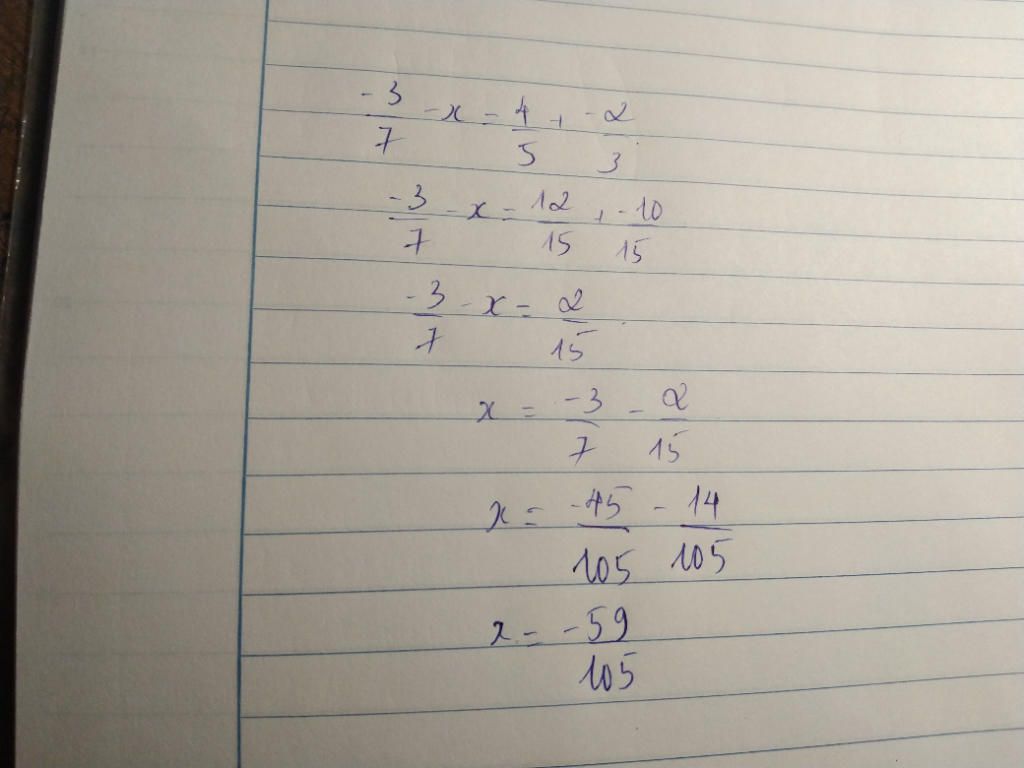 -3/7 - x = 4/5 + -2/3
-3/7 - x = 12/15 + -10/15
-3/7 - x = 2/15
x = -3/7 - 2/15
x = -45/105 - 14/105
x = -59/105